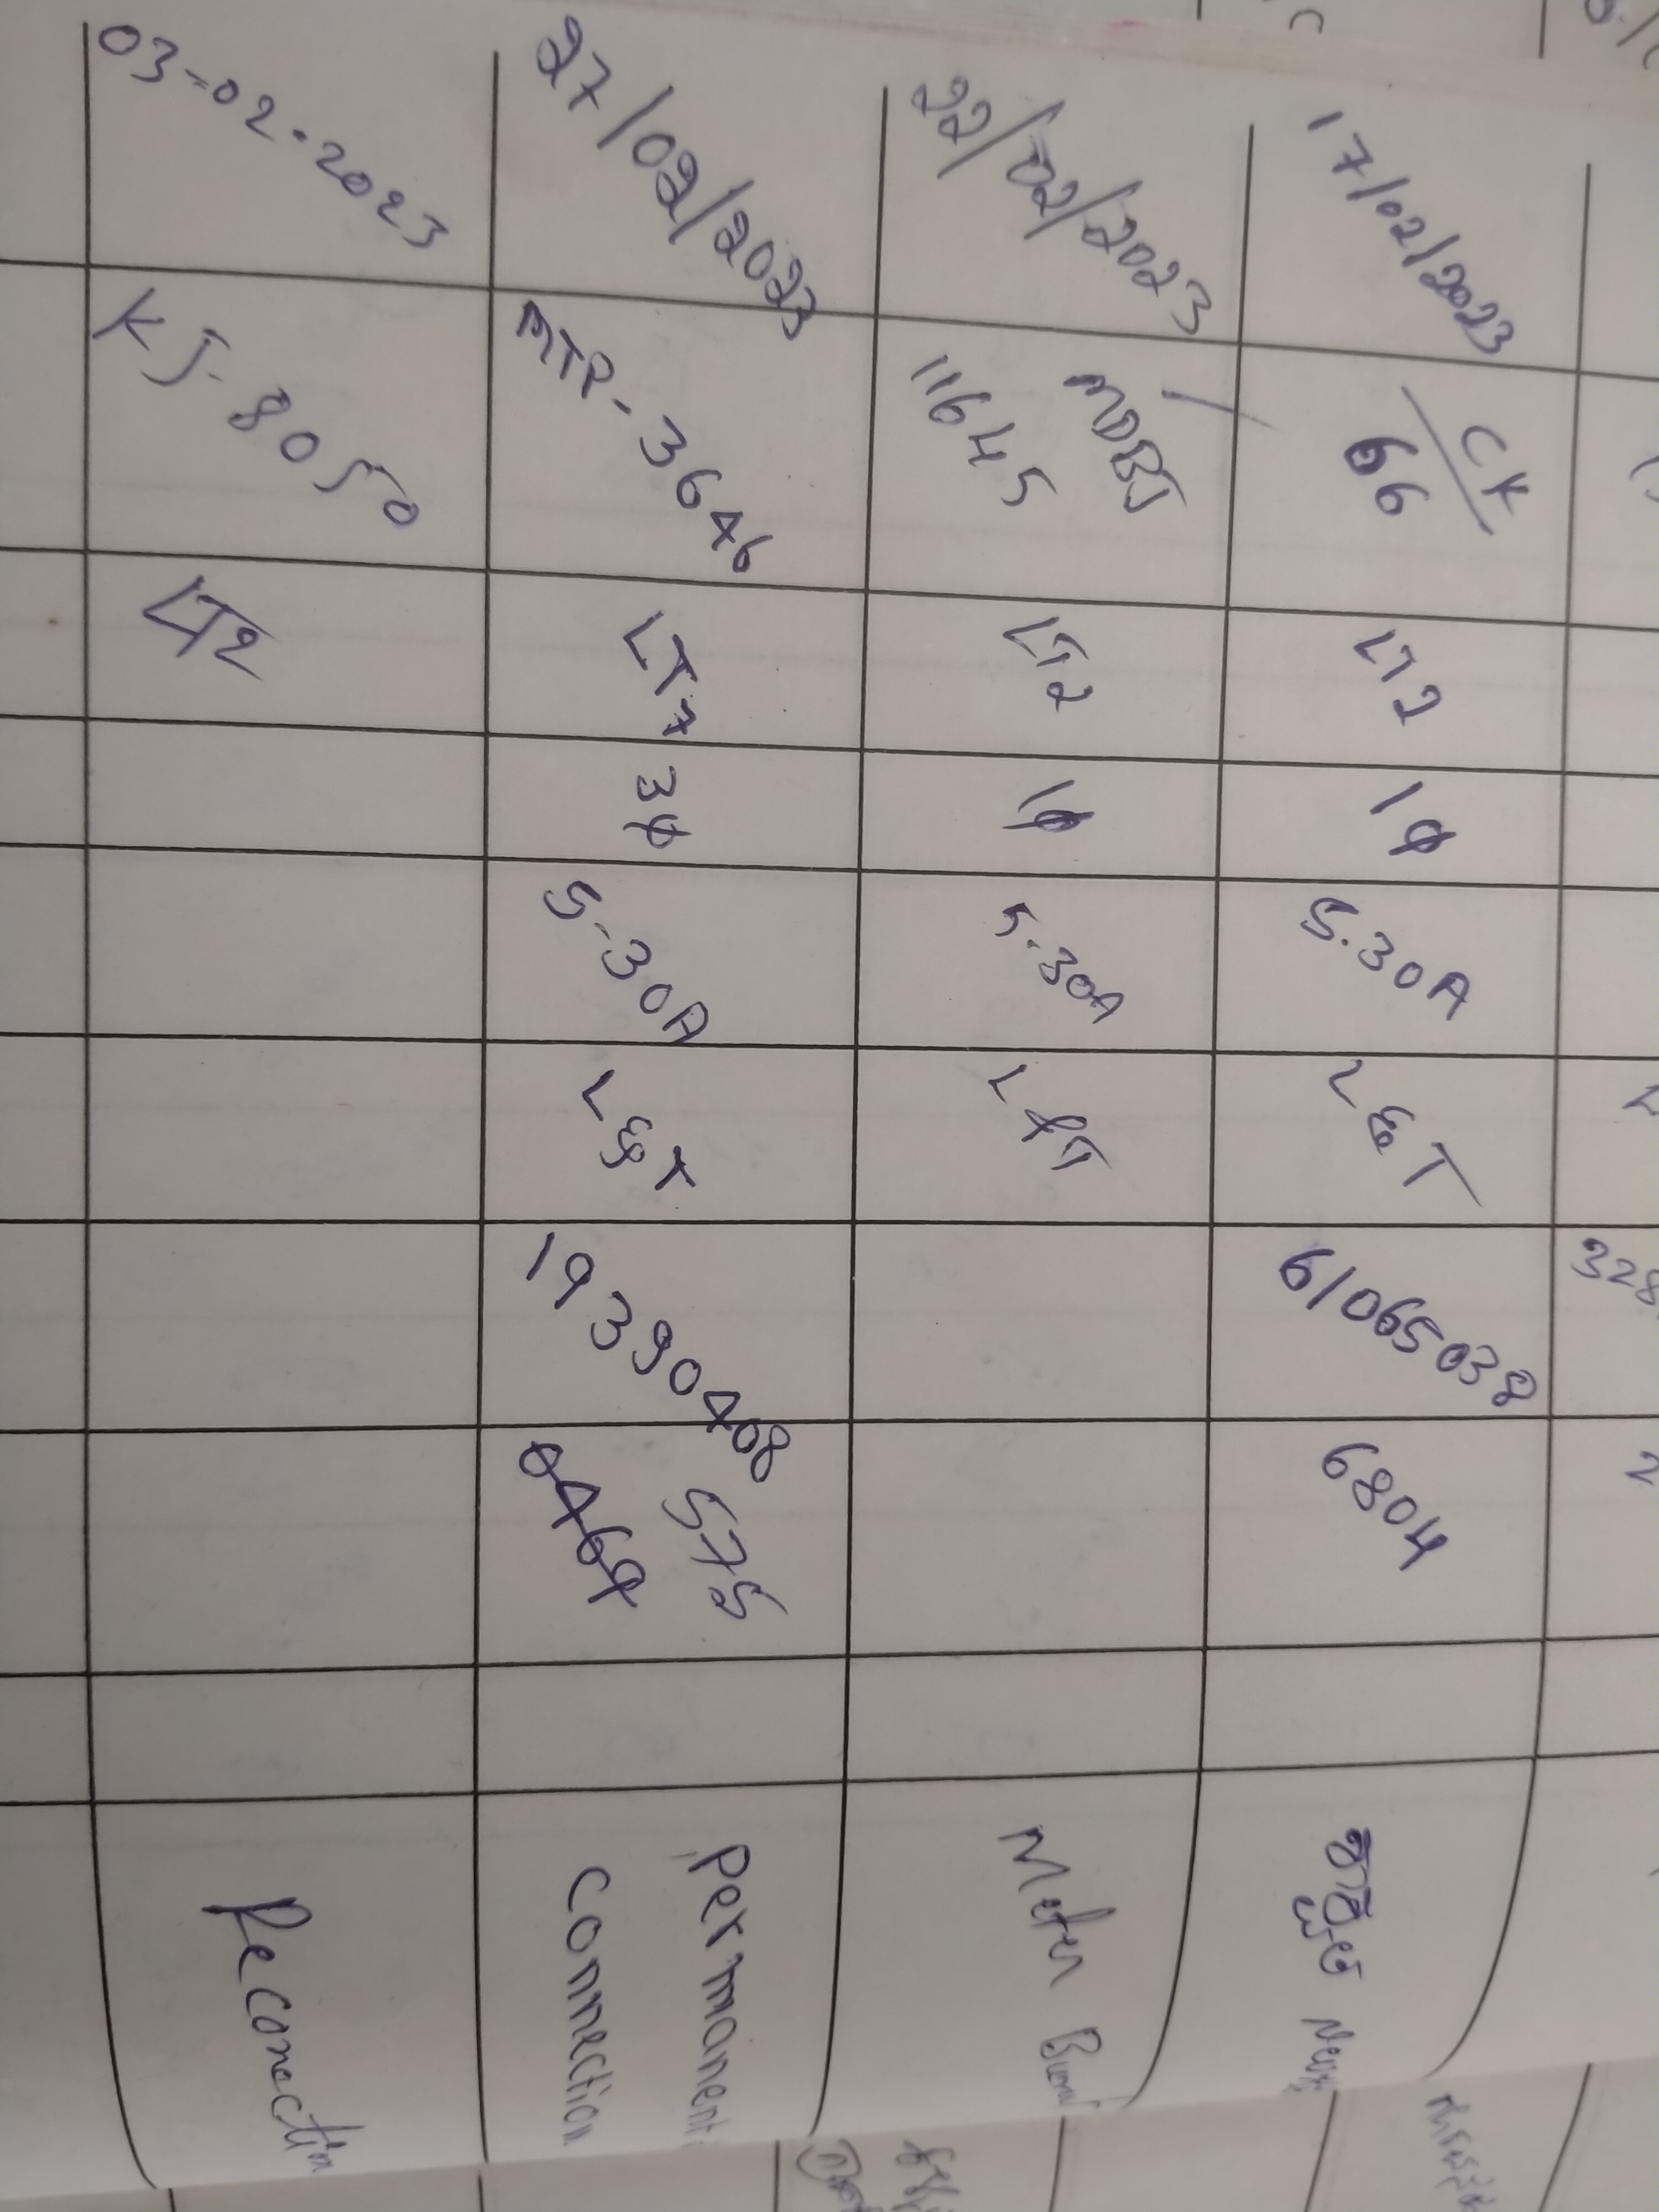 17/02/2023
CK
66
LT2
1φ
5.30A
L&T
61065038
6804
22/02/2023
MDBJ
11645
LT2
1φ
5-30A
L&T
Meter Burnt
27/02/2023
MTP-3646
LT7
3φ
5-30A
L&T
19390408
575
Permanent
Connection
03-02-2023
KJ-8050
LT2
Reconection